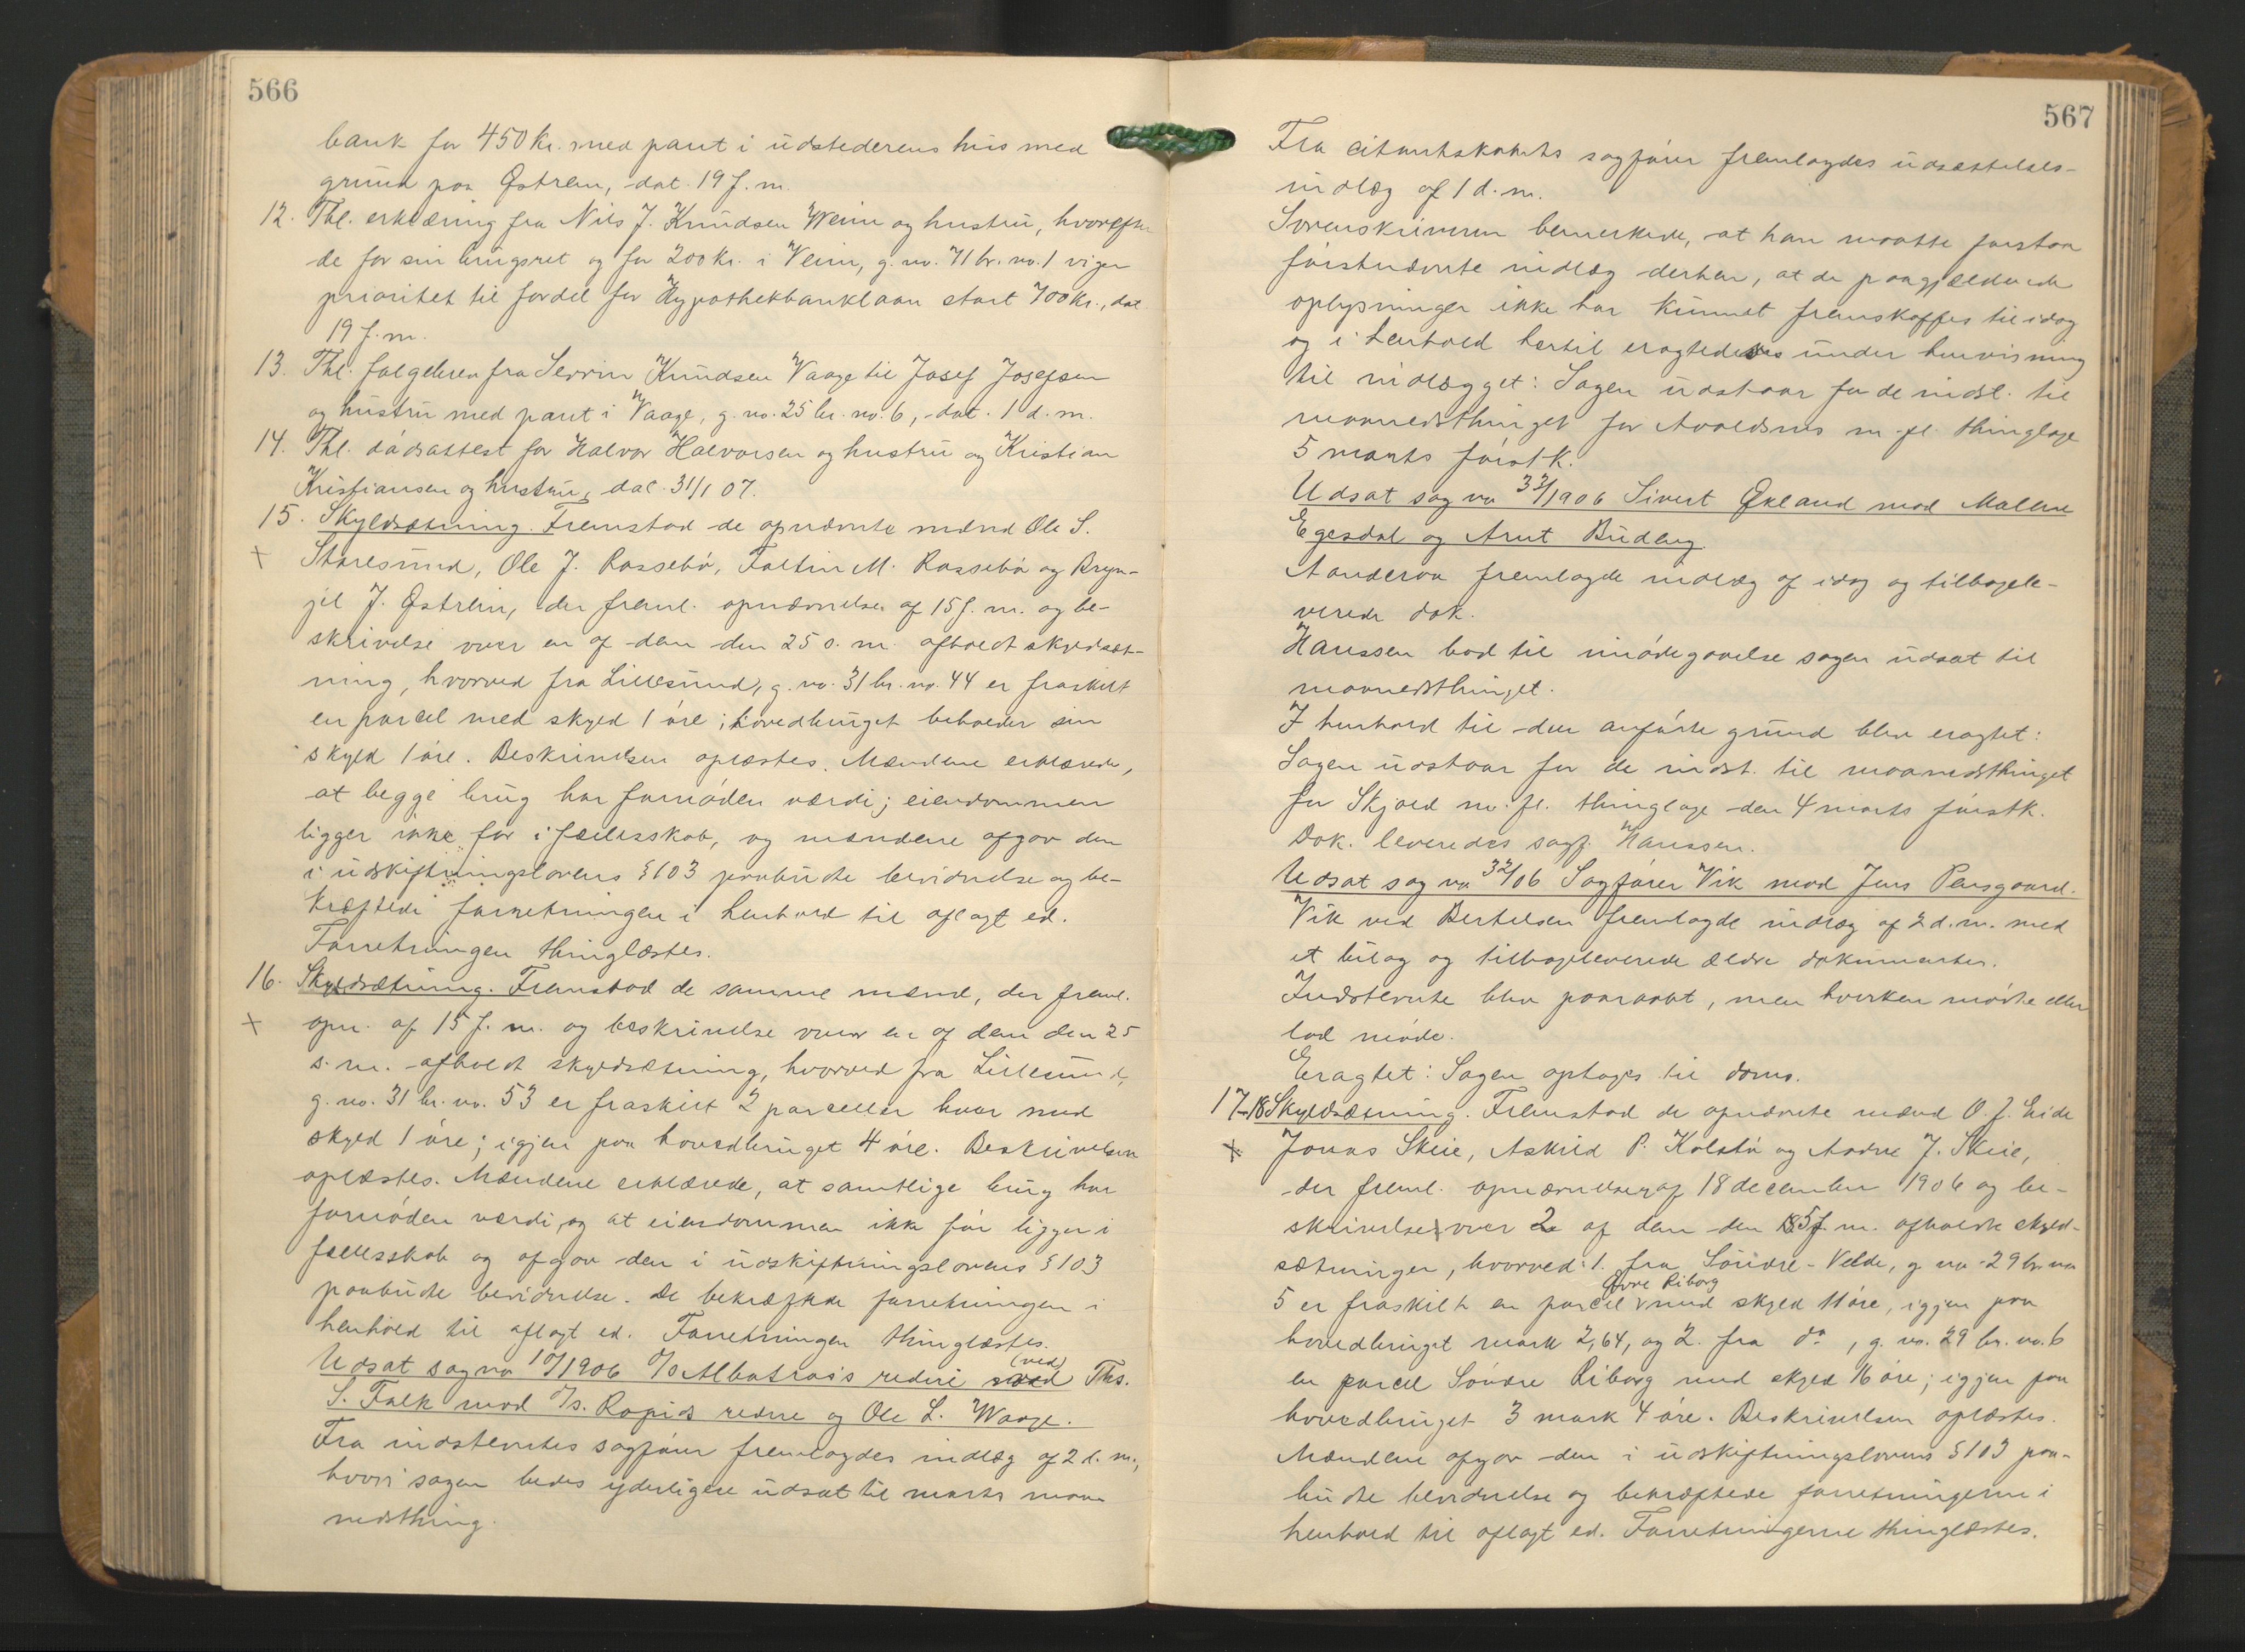 566
bank for 450 kr. med pant i udstederens hus med
grund paa Østrem, dat. 19 f. m.
12. Thl. erklæring fra Nils J. Knudsen Weim og hustru, hvorefter
de for sin brugsret og for 200 kr. i Veim, g. no. 71 br. no. 1 viger
prioritet til fordel for Hypothekbanklaan stort 700 kr., dat
19 f. m.
13. Thl. følgebrev fra Serrin Knudsen Vaage til Josef Josefsen
og hustru med pant i Vaage, g. no. 25 br. no. 6, dat. 1 d. m.
14. Thl. dødsattest for Halvor Halvorsen og hustru og Kristian
Kristiansen og hustru, dat. 31/1 07.
15. Skyldsætning. Fremstod de opnævnte mænd Ole S.
x Storesund, Ole J. Rossebø, Faltin M. Rossebø og Bryn-
jel J. Østrem, der freml. opnævnelse af 15 f. m. og be-
skrivelse over en af dem den 25 s. m. afholdt skyldsæt-
ning, hvorved fra Lillesund, g. no. 31 br. no. 44 er fraskilt
en parcel med skyld 1 øre; hovedbruget beholder sin
skyld 1 øre. Beskrivelsen oplæstes. Mændene erklærede,
at begge brug har fornøden værdi; eiendommen
ligger ikke før i fællesskab, og mændene afgav den
i udskiftningslovens § 103 paabudte bevidnelse og be-
kræftede forretningen i henhold til aflagt ed.
Forretningen thinglæstes.
16. Skyldsætning. Fremstod de samme mænd, der freml.
x opn. af 15 f. m. og beskrivelse over en af dem den 25
s. m. afholdt skyldsætning, hvorved fra Lillesund,
g. no. 31 br. no. 53 er fraskilt 2 parceller hver med
skyld 1 øre; igjen paa hovedbruget 4 øre. Beskrivelsen
oplæstes. Mændene erklærede, at samtlige brug har
fornøden værdi, og at eiendommen ikke før ligger i
fællesskab og afgav den i udskiftningslovens § 103
paabudte bevidnelse. De bekræftede forretningen i
henhold til aflagt ed. Forretningen thinglæstes.
Udsat sag no 10/1906 A/S Albatross rederi (ved) Ths.
S. Falk mod A/S. Rapids rederi og Ole L. Waage.
Fra indstevntes sagfører fremlagdes indlæg af 2 d. m.,
hvori sagen bedes yderligere udsat til marts maa-
nedsthing.
567
Fra citantskabets sagfører fremlagdes udsættelses-
indlæg af 1 d. m.
Sorenskriveren bemerkede, at han maatte forstaa
førstnævnte indlæg derhen, at de paagjældende
oplysninger ikke har kunnet fremskaffes til idag
og i henhold hertil eragtedes under henvisning
til indlægget: Sagen udstaar for de indst. til
maanedsthinget for Avaldsnes m. fl. thinglage
5 marts førstk.
Udsat sag no 33/1906 Sivert Økland mod Malene
Egesdal og Arnt Buderg.
Aanderaa fremlagde indlæg af idag og tilbagele-
verede dok.
Hanssen bad til imødegaaelse sagen udsat til
maanedsthinget.
I henhold til den anførte grund blev eragtet:
Sagen udstaar for de indst. til maanedsthinget
for Skjold m. fl. thinglage den 4 marts førstk.
Dok. leveredes sagf. Hanssen.
Udsat sag no 32/06 Sagfører Vik mod Jens Pensgaard.
Vik ved Bertelsen fremlagde indlæg af 2 d. m. med
et bilag og tilbageleverede ældre dokumenter.
Indstevnte blev paaraabt, men hverken mødte eller
lod møde.
Eragtet: Sagen optages til doms.
17-18 Skyldsætning. Fremstod de opnævnte mænd O. J. Eide
x Jonas Skeie, Askild P. Kolstø og Andve J. Skeie,
der freml. opnævnelser af 18 december 1906 og be-
skrivelse over 2 af dem den 15 f. m. afholdte skyld-
sætninger, hvorved: 1. fra Søndre-Velde, g no 29 br. no
Øvre Riborg
5 er fraskilt en parcel med skyld 11 øre, igjen paa
hovedbruget mark 2,64, og 2. fra do, g. no. 29 br. no. 6
en parcel Søndre Riborg med skyld 16 øre; igjen paa
hovedbruget 3 mark 4 øre. Beskrivelsen oplæstes.
Mændene afgav den i udskiftningslovens § 103 paa-
budte bevidnelse og bekræftede forretningerne i
henhold til aflagt ed. Forretningerne thinglæstes.